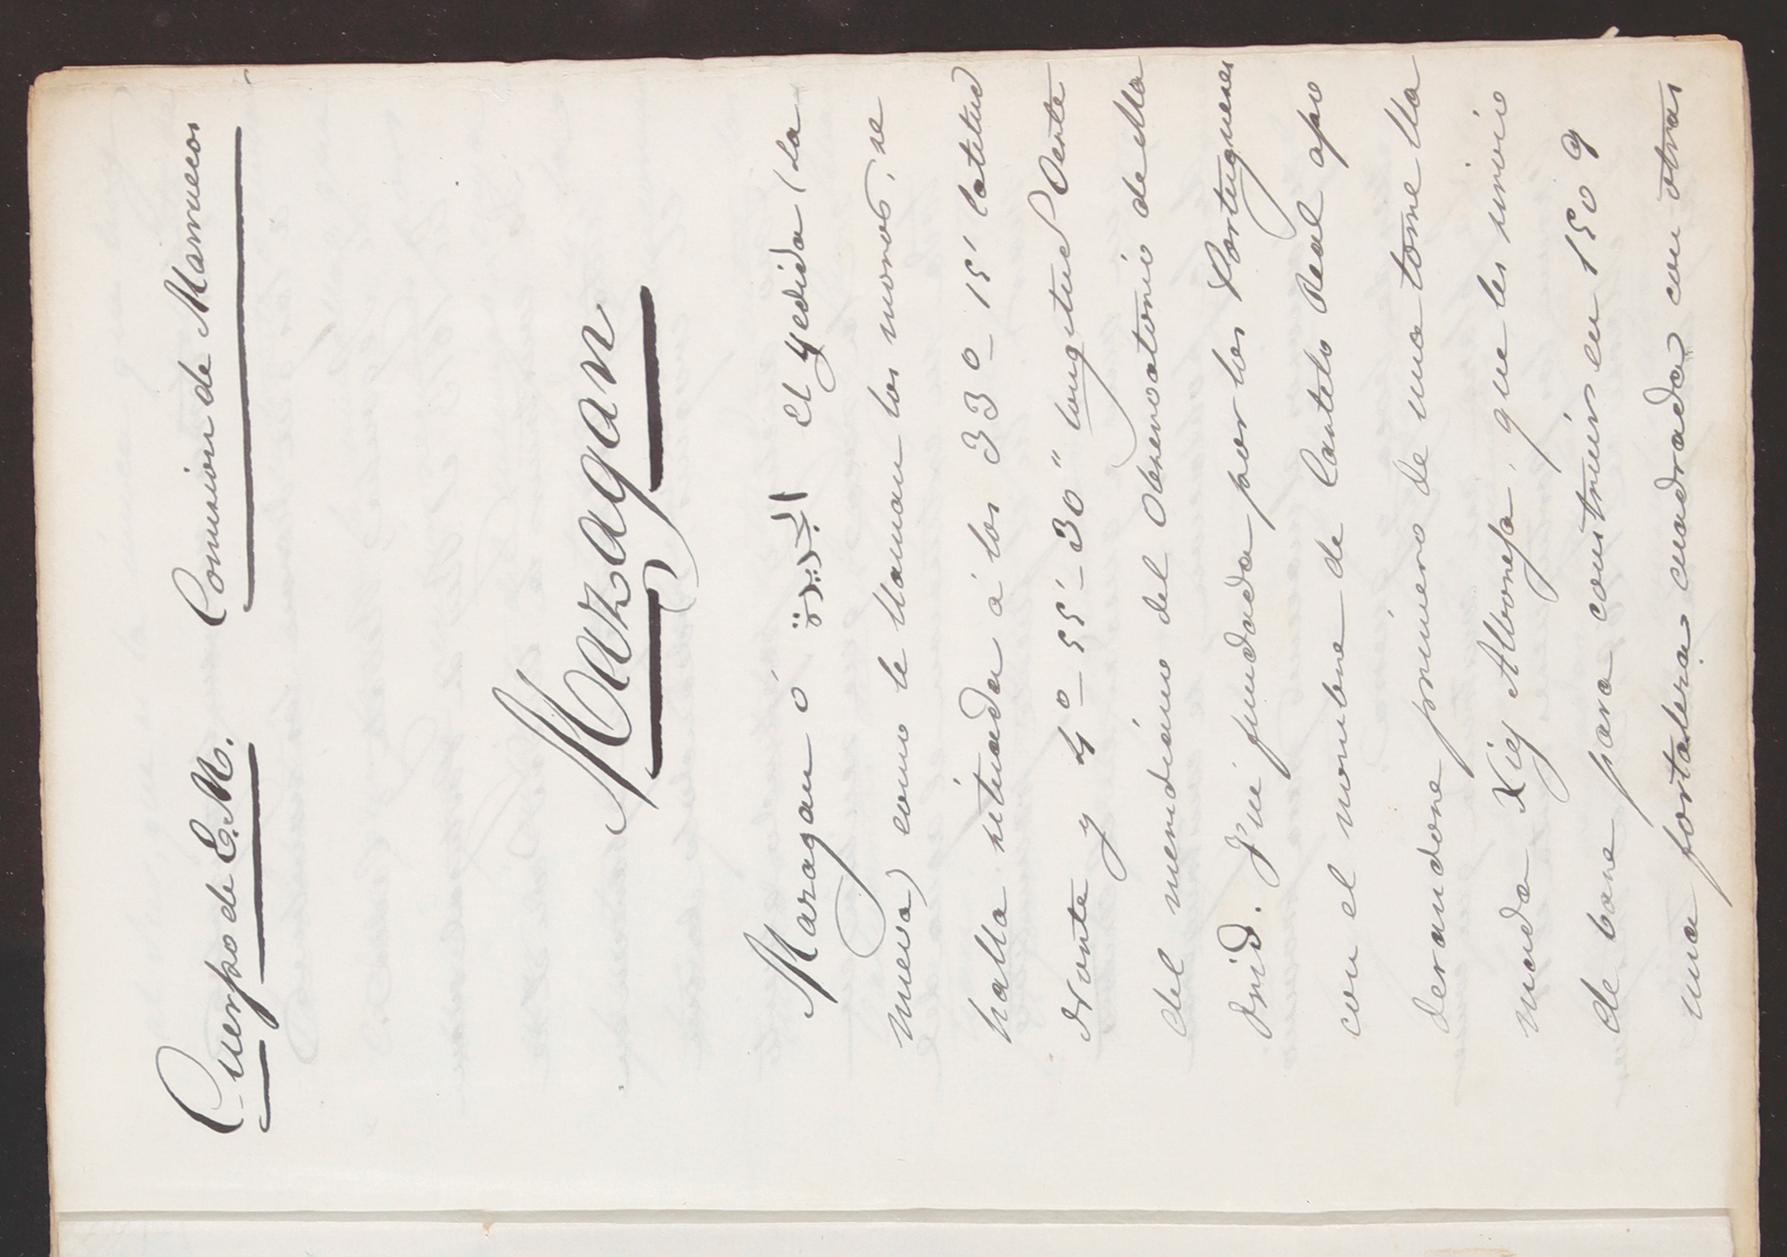 Cuerpo de E.M. Comision de Marruecos
Mazagan
Mazagan ó الجديدة el Yedida (la
nueva) como le llaman los moros, se
halla situada á los 33º_15' latitud
Norte y 4º_55'_30" longitud Oeste
del meridiano del Observatorio de Ma
drid. Fué fundada por los Portugueses
con el nombre de Castelo Real apo
derandose primero de una torre lla
mada que les sirvió
de base para construir en 1509
una fortaleza cuadrada con otras